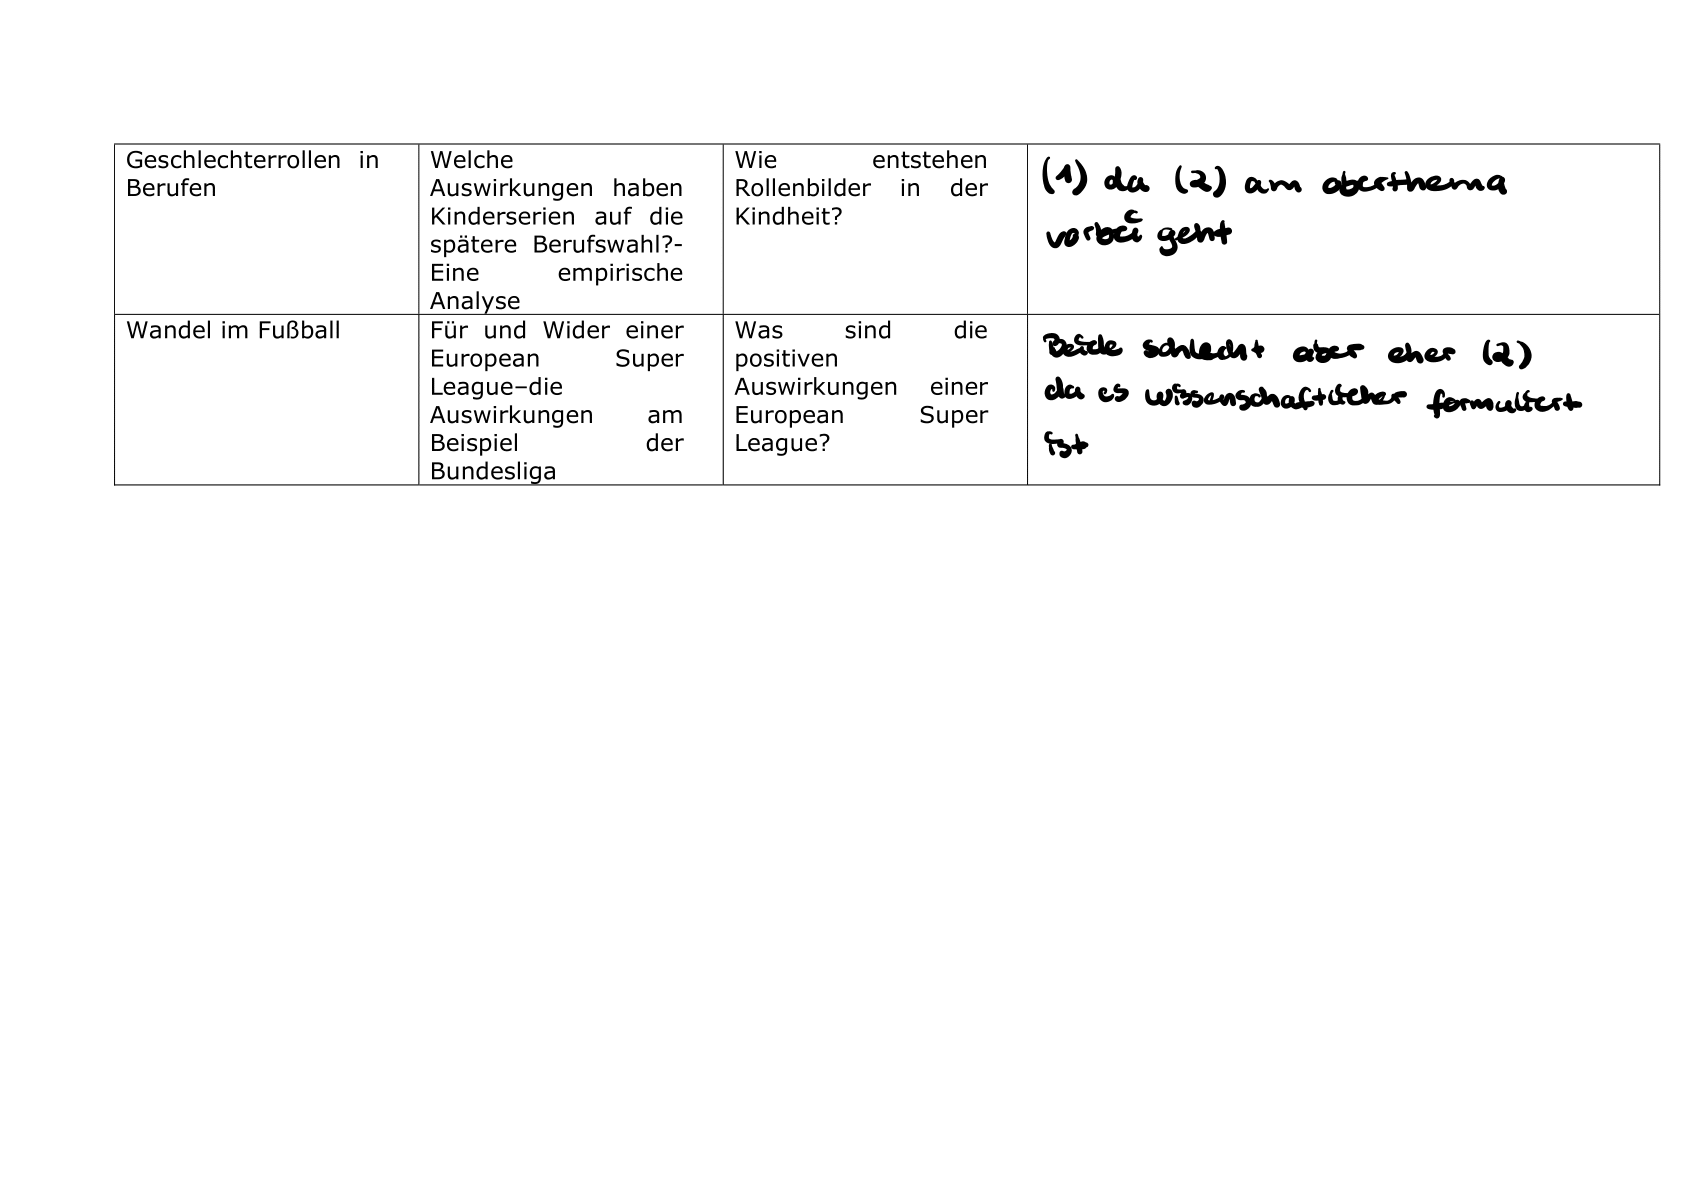 Geschlechterrollen in
Berufen
Welche
Auswirkungen haben
Kinderserien auf die
spätere Berufswahl?-
Eine empirische
Analyse
Wie entstehen
Rollenbilder in der
Kindheit?
(1) da (2) am oberthema
vorbei geht
Wandel im Fußball
Für und Wider einer
European Super
League–die
Auswirkungen am
Beispiel der
Bundesliga
Was sind die
positiven
Auswirkungen einer
European Super
League?
Beide schlecht aber eher (2)
da es wissenschaftlicher formuliert
ist